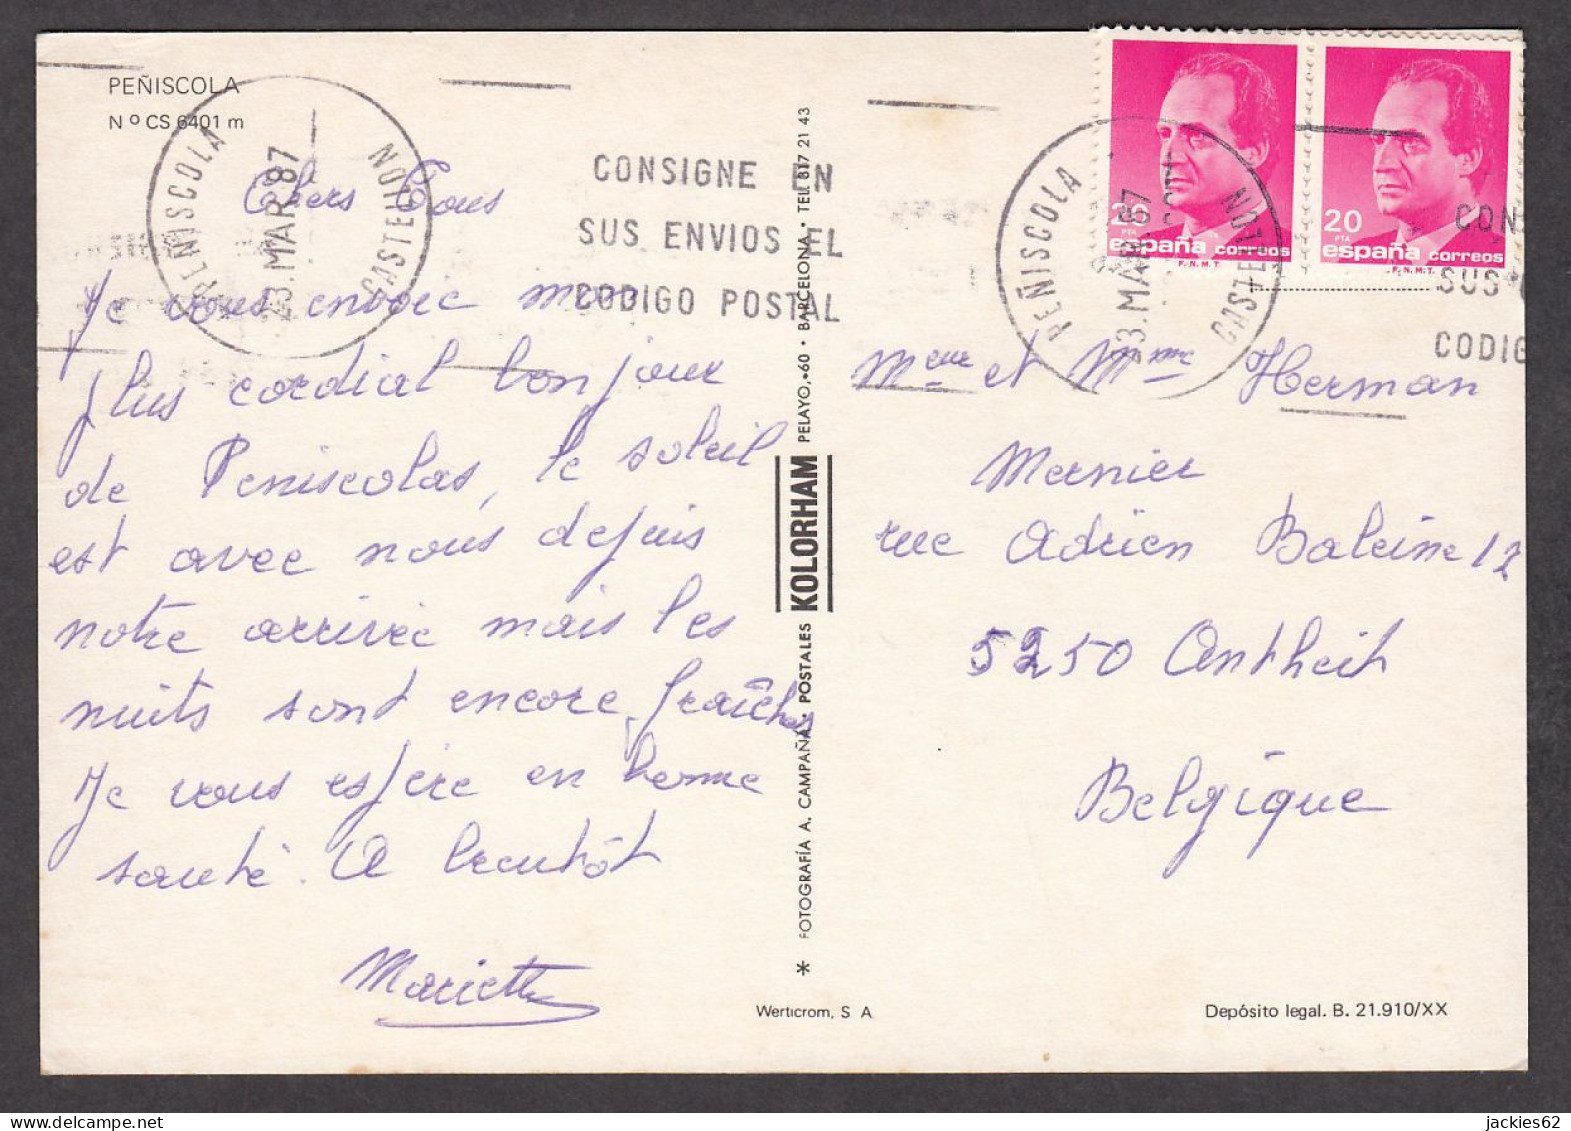 PEÑISCOLA
Nº CS 6401 m
PEÑISCOLA
CASTELLON
23.MAR.87
CONSIGNE EN
SUS ENVIOS EL
CODIGO POSTAL
Chers Tous
Je vous envoie mon
plus cordial bonjour
de Peniscolas, le soleil
est avec nous depuis
notre arrivée mais les
nuits sont encore fraîches
Je vous espère en bonne
santé. A bientôt
Mariette
* FOTOGRAFÍA A. CAMPAÑÁ, POSTALES KOLORHAM PELAYO, 60 · BARCELONA · TEL. 317 21 43
Werticrom, S A
20 PTA
españa correos
F.N.M.T.
20 PTA
españa correos
F.N.M.T.
PEÑISCOLA
CASTELLON
23.MAR.87
CON
SUS
CODIG
Meur et Mme Herman
Mernier
rue Adrien Baleine 12
5250 Antheit
Belgique
Depósito legal. B. 21.910/XX
jackies62